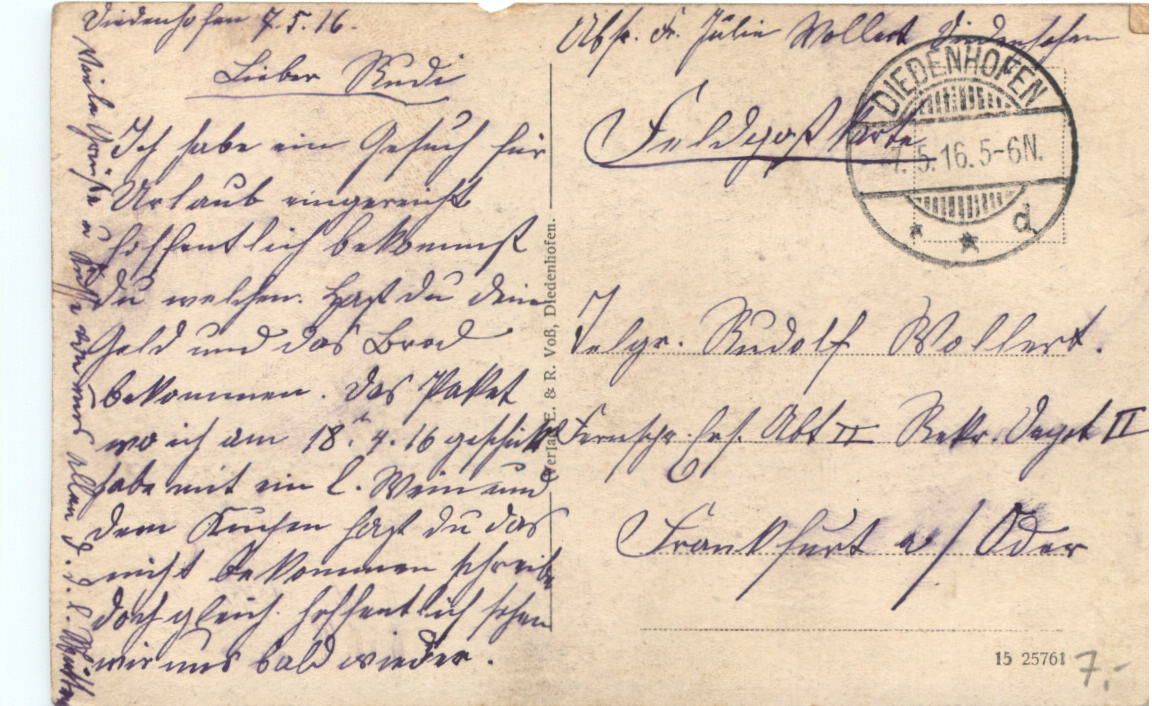 Diedenhofen 7.5.16.
Lieber Rudi
Ich habe ein Gesuch für
Urlaub eingereicht
hoffentlich bekommst
du welchen. Hast du dein
Geld und das Brod
bekommen. Das Paket
wo ich am 18. 4. 16 geschickt
habe mit ein l. Wein und
dem Kuchen hast du das
nicht bekommen schreibe
doch gleich. hoffentlich sehen
wir uns bald wieder.
Viele Grüße u Küsse von uns allen d. d. l. Mutter
Abs. Fr. Julie Wollert Diedenhofen
Feldpostkarte
DIEDENHOFEN
7.5.16.5-6N.
* * d
Telgr. Rudolf Wollert.
Fernspr. Ers. Abt II Rekr. Depot II
Frankfurt a/Oder
Verlag E. & R. Voß, Diedenhofen.
15 25761
7.-